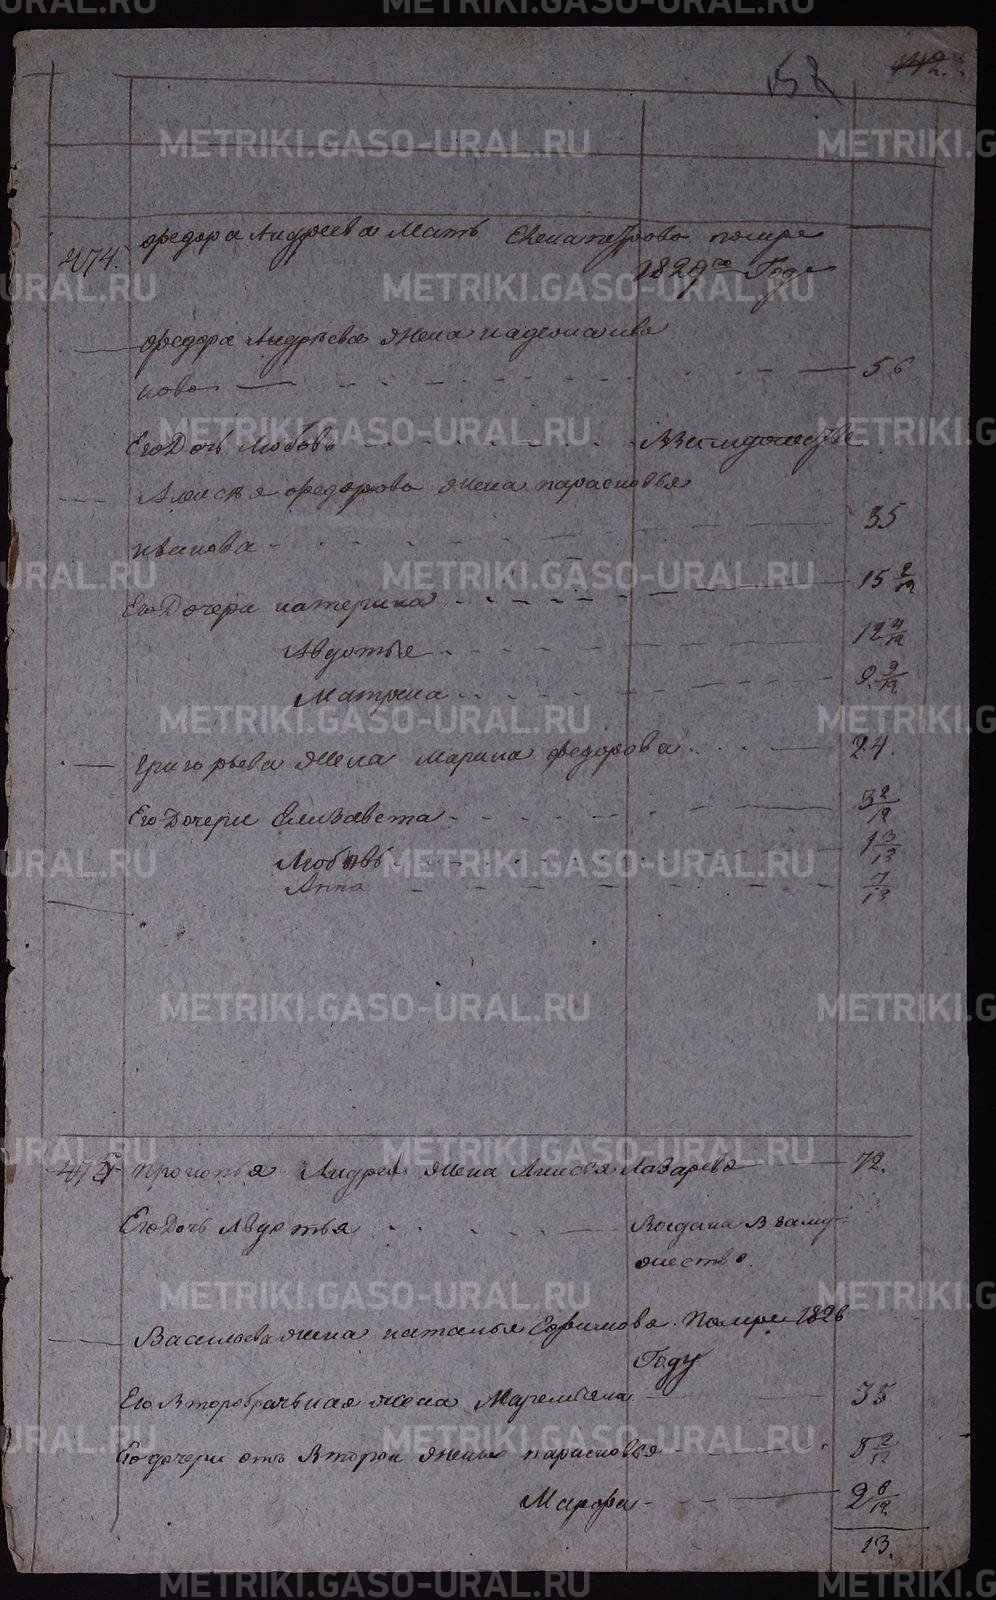 152
142.
474. Федора Андреева Мать Елена Петрова помре
1829го Годе
Федора Андреева жена Надежна Ива
нова 56
Его Дочь Любовь В Замужестве
Алексея Федорова жена парасковья
Иванова 35
Его Дочери катерина 15 2/12
Авдотья 12 4/12
Матрена 9 9/12
Григорьева жена Марина Федорова 24
Его Дочери Елизавета 3 2/12
Любовь 1 3/12
Анна 7/12
475 Прокопья Андрея жена Анисья Лазарева 72.
Его Дочь Авдотья Выдана В заму
жество.
Васильева жена наталья Ефимова. Помре 1826
Году
Его Второбрачьная жена Маремьяна 35
Его дочери отъ Второй жены парасковья 8 2/12
Марфа 2 6/12
13.
METRIKI.GASO-URAL.RU